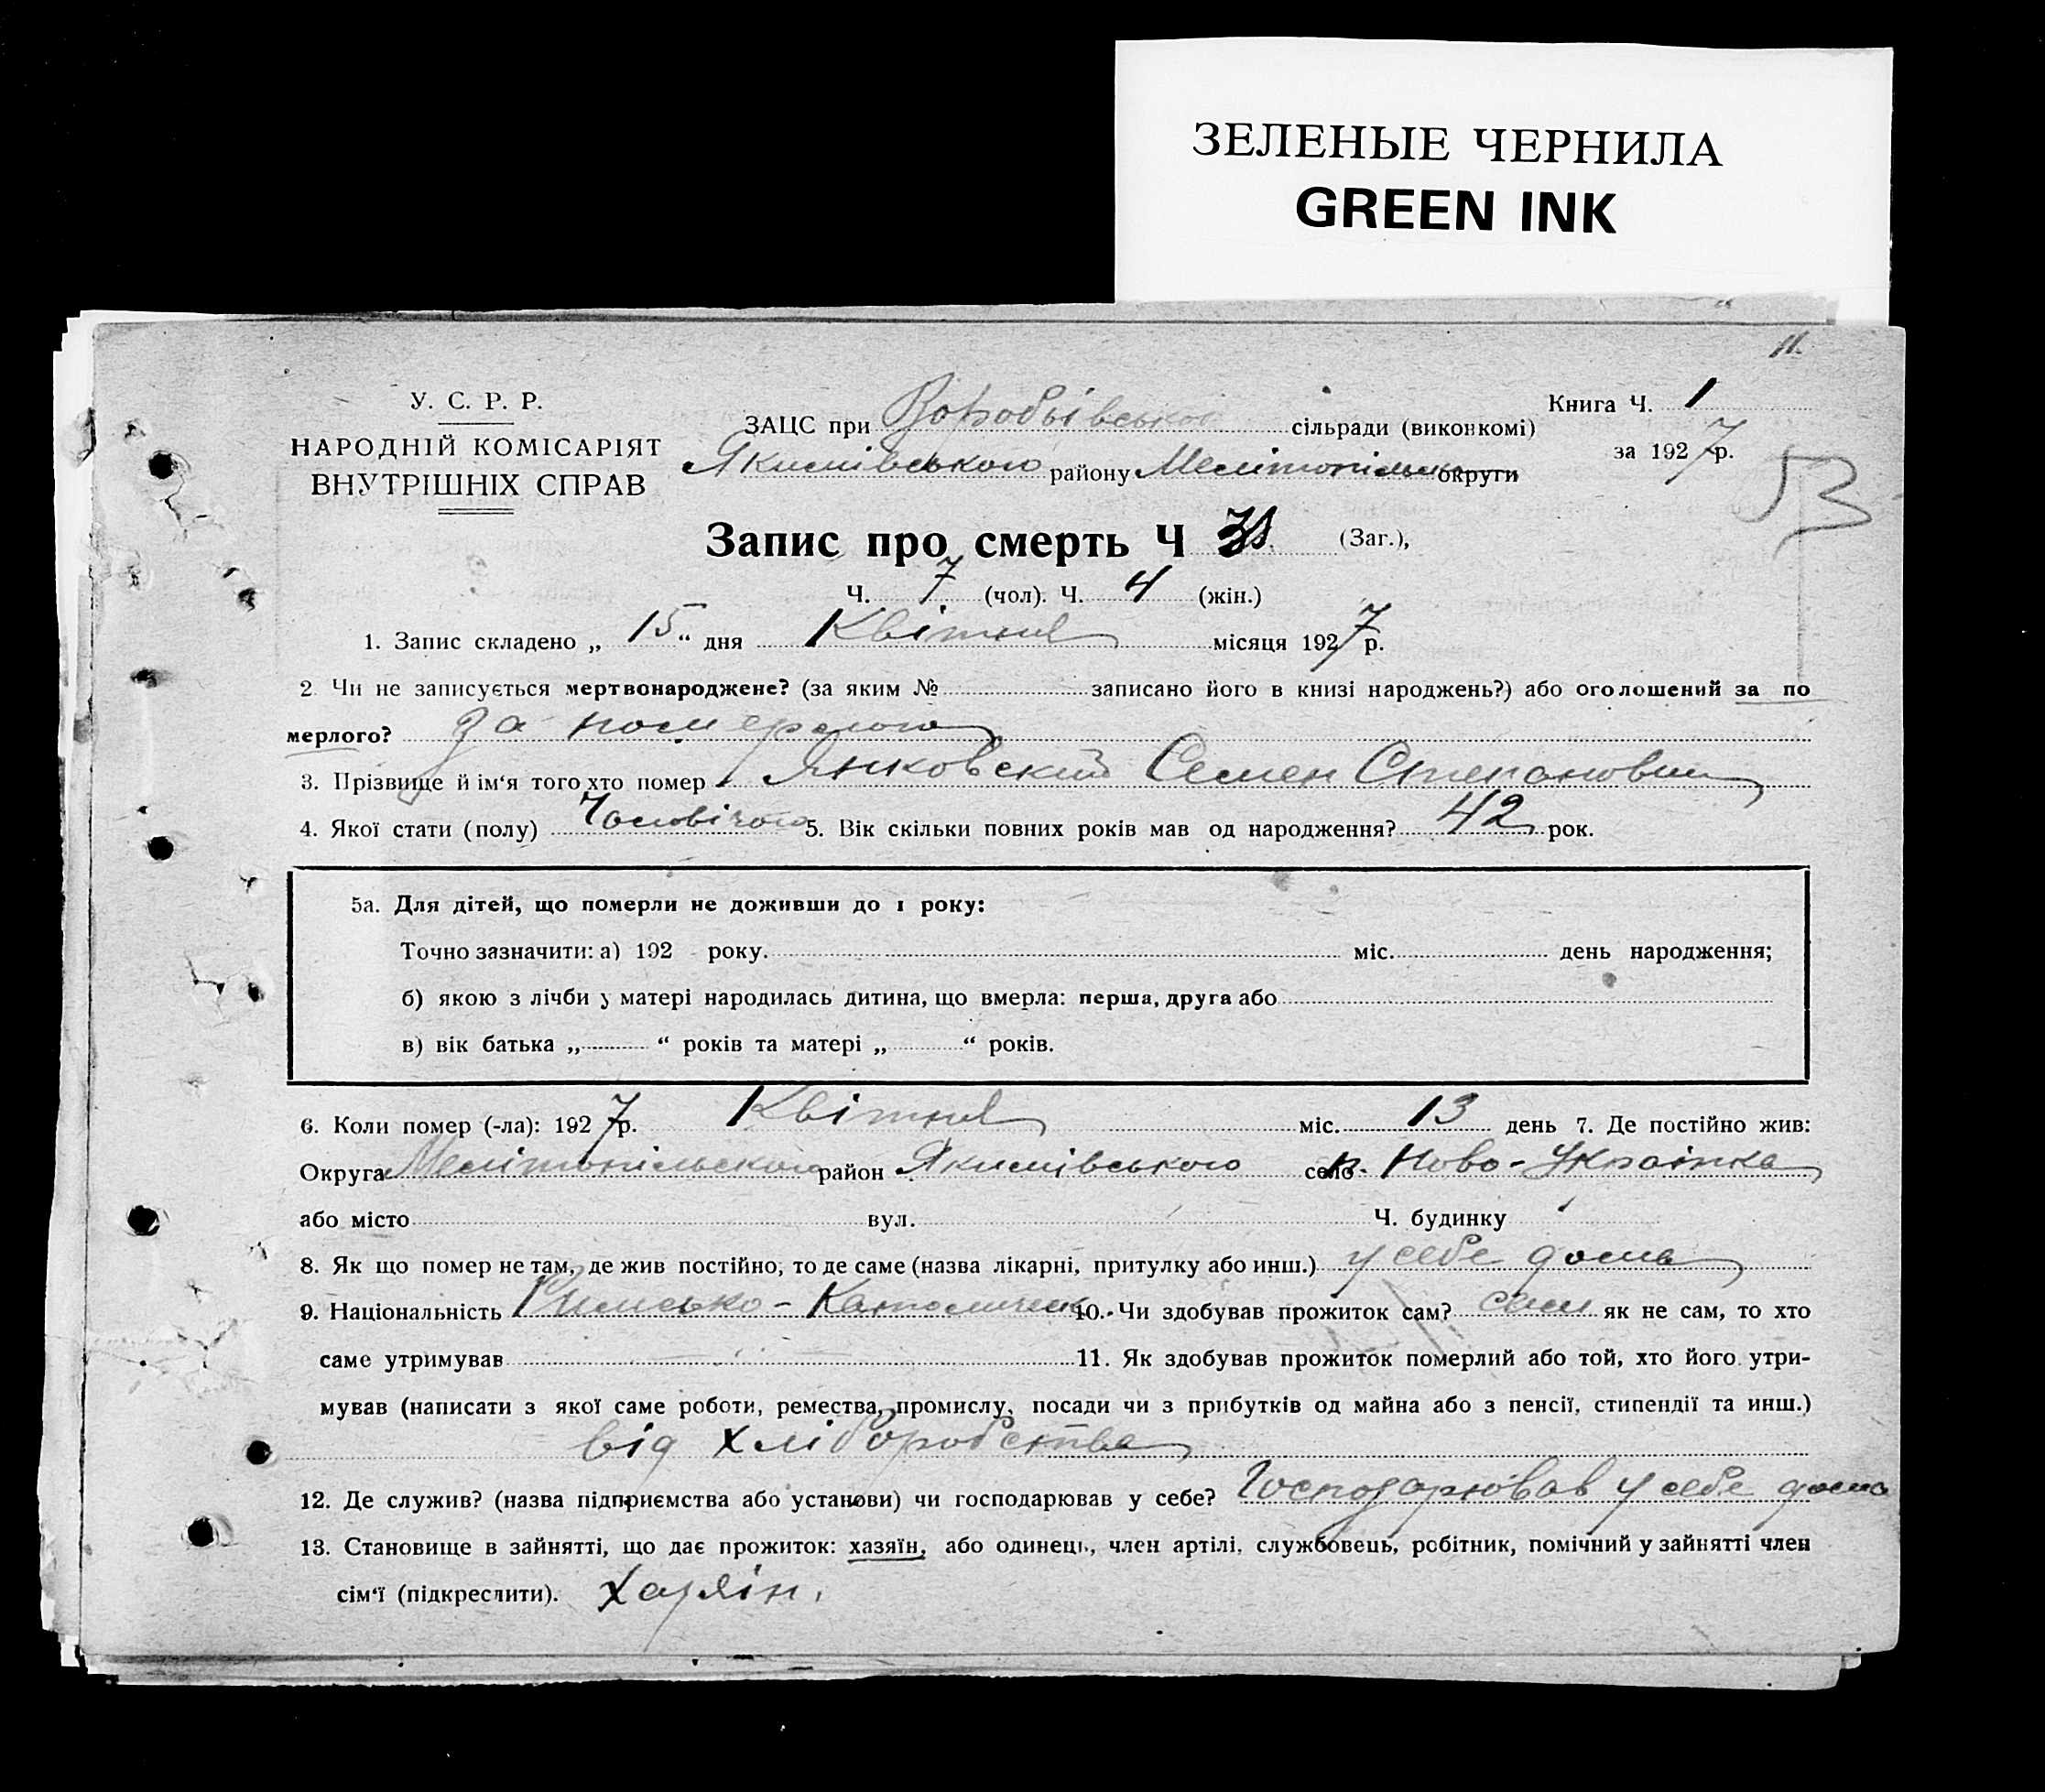 ЗЕЛЕНЫЕ ЧЕРНИЛА
GREEN INK
11.
У. С. Р. Р.
НАРОДНІЙ КОМІСАРІЯТ
ВНУТРІШНІХ СПРАВ
ЗАЦС при Воробьівської сільради (виконкомі)
Якимівського району Мелітопільськ округи
Книга Ч. 1
за 1927 р.
53
Запис про смерть Ч (Заг.),
Ч. 7 (чол). Ч. 4 (жін.)
1. Запис складено „ 15 “ дня Квітня місяця 1927 р.
2. Чи не записується мертвонароджене? (за яким № записано його в книзі народжень?) або оголошений за по
мерлого? за померлого
3. Прізвище й ім‘я того хто помер Янковский Семен Степанович
4. Якої стати (полу) Чоловічого 5. Вік скільки повних років мав од народження? 42 рок.
5а. Для дітей, що померли не доживши до 1 року:
Точно зазначити: а) 192 року. міс. день народження;
б) якою з лічби у матері народилась дитина, що вмерла: перша, друга або
в) вік батька „ “ років та матері „ “ років.
6. Коли помер (-ла): 1927 р. Квітня міс. 13 день 7. Де постійно жив:
Округа Мелітопільського район Якимівського село п. Ново-Українка
або місто вул. Ч. будинку
8. Як що помер не там, де жив постійно, то де саме (назва лікарні, притулку або инш.) у себе дома
9. Національність Римсько-Католическ 10. Чи здобував прожиток сам? сам як не сам, то хто
саме утримував 11. Як здобував прожиток померлий або той, хто його утри-
мував (написати з якої саме роботи, ремества, промислу, посади чи з прибутків од майна або з пенсії, стипендії та инш.)
від хліборобства
12. Де служив? (назва підприємства або установи) чи господарював у себе? Господарював у себе дома
13. Становище в зайнятті, що дає прожиток: хазяїн, або одинець, член артілі, службовець, робітник, помічний у зайнятті член
сім‘ї (підкреслити). Хазяін.